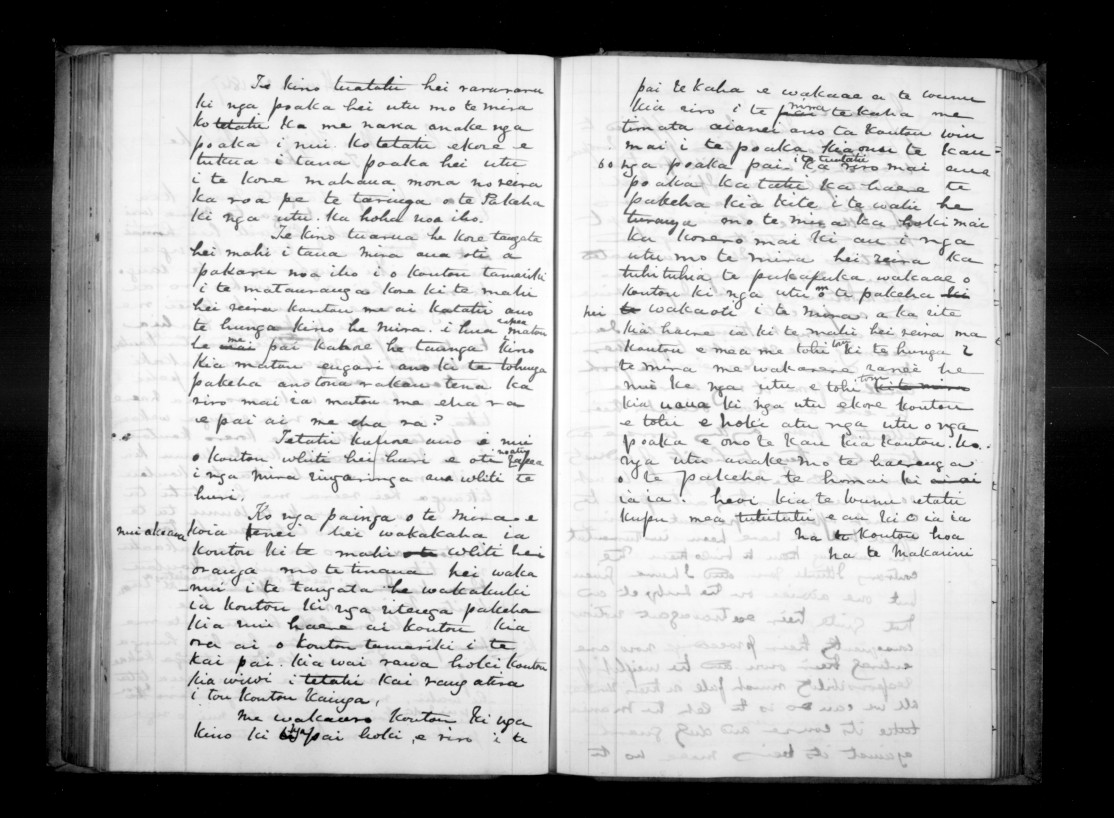 Te kino tuatahi hei raruraru
ki nga poaka hei utu mo te mira
ko tetahi ka me nana anake nga
poaka i nui. Ko tetahi ekore e
tukua i tana poaka hei utu
i te kore mahana mona no reira
ka roa pe te taringa o te Pakeha
ki nga utu. Ka hoha noa iho.
Te kino tuarua he kore tangata
hei mahi i tana mira ana oti a
pakaru noa iho i o koutou tamariki
i te matauranga kore ki te mahi
hei reira koutou mea ai katahi ano
te hunga kino he mira. i hua matou
he mea pai kahore he taanga kino
kia matou engari ano ki te tohunga
pakeha ano tona rakau tena ka
riro mai ia matou me eha ra
e pai ai me eha ra?
Tetahi kahore ano i nui
o koutou whiti hei huri e oti noatu
i nga mira ringaringa ana whiti te
huri.
Ko nga painga o te mira e
nui ake ana koia enei hei wakakaha ia
koutou ki te mahi whiti hei
oranga mo te tinana hei waka
nui i te tangata he wakahuki
ia koutou ki nga ritenga pakeha
kia nui haere ai koutou kia
ora ai o koutou tamariki i te
kai pai. kia wai rawa hoki koutou
kia wiwi i tetahi kai rangatira
i tou koutou kainga,
me wakaaro koutou ki nga
kino ki nga pai hoki, e riro i te
pai te kaha e wakaae a te wunu
kia riro i te mira te kaha me
timata aianei ano ta koutou win
mai i te poaka kia onu te kau
60 nga poaka pai. i te tuatahi ka riro mai ana
poaka ka tahi ka haere te
pakeha kia kite i te wahi he
turanga mo te mira ka hoki mai
ka korero mai ki au i nga
utu mo te mira hei reira ka
tuhituhia te pukapuka wakaae o
koutou ki nga utu o te pakeha
hei wakaoti i te mira a ka rite
kia haere ia ki te mahi hei reira ma
koutou e mea me tohi tou ki te hunga 2
te mira me wakarera ranei he
nui ke nga utu e tohi tonu
kia uaua ki nga utu ekore koutou
e tohu e hoki atu nga utu o nga
poaka e ono te kau kia koutou. Ko
nga utu anake mo te haerenga
o te pakeha te homai ki
ia ia. heoi kia te wunu etahi
kupu mea tuhituhi e au ki a ia ia
na to koutou hoa
na te Makarini